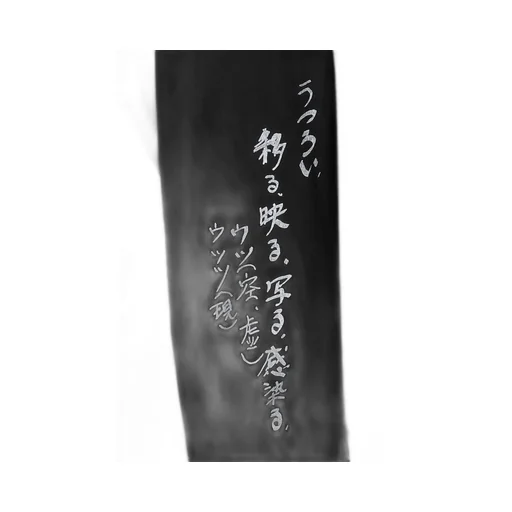 うつろい、
移る、映る、写る、感染る、
ウツ(空、虚)
ウツツ(現)